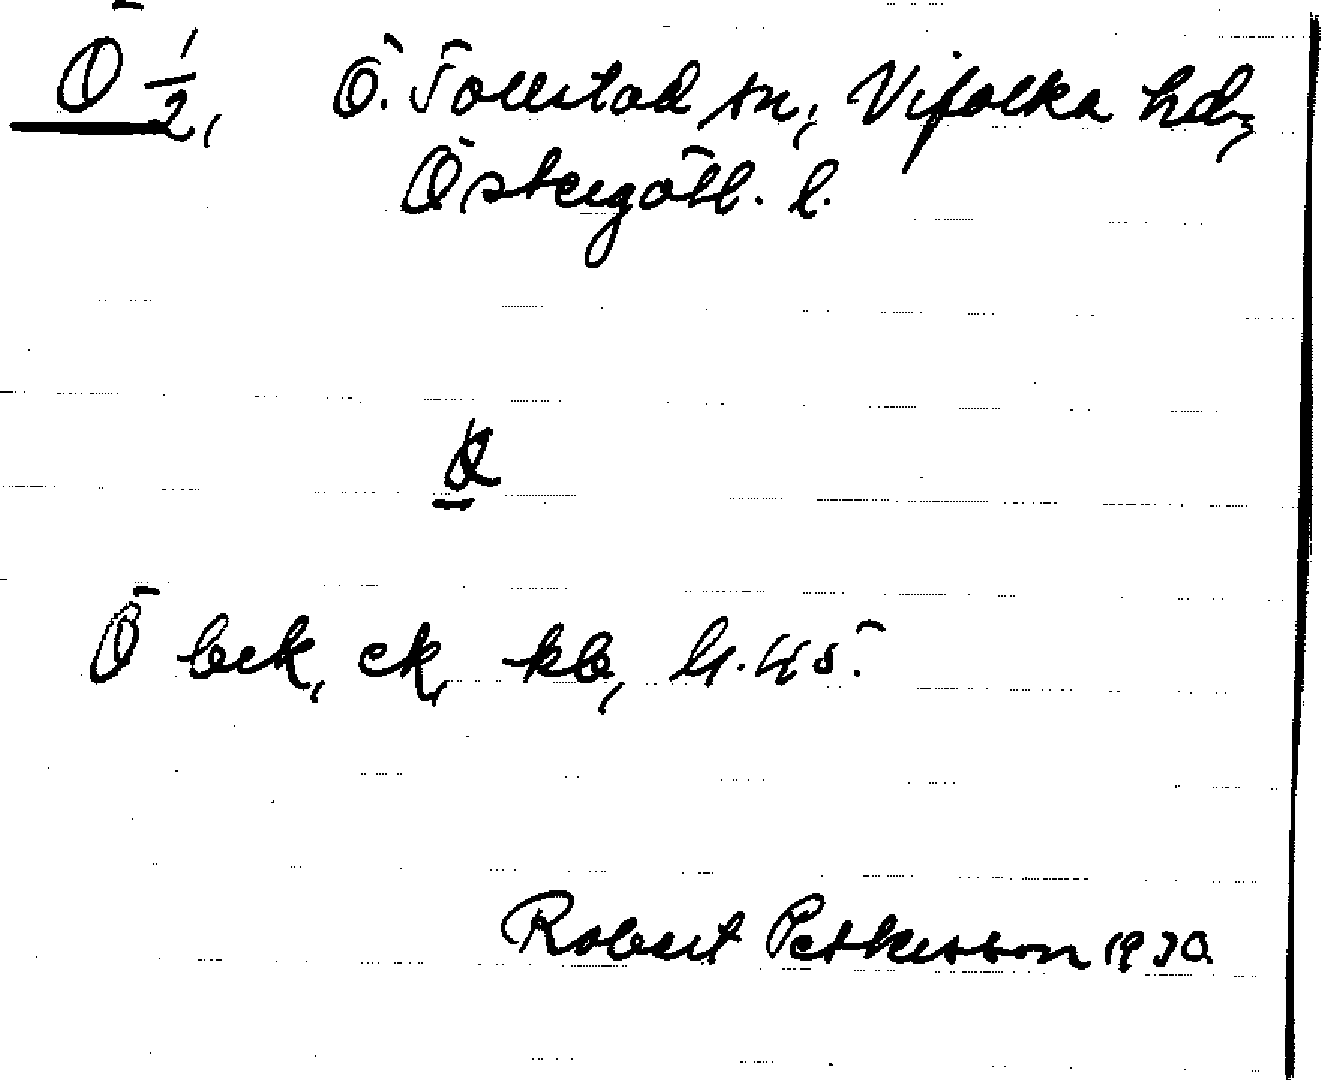 Ö 1/2, Ö. Tollstad sn, Vifolka hd,
Östergötl. l.
Ö bek, ek, kb, h. 45.
Robert Pettersson 1930